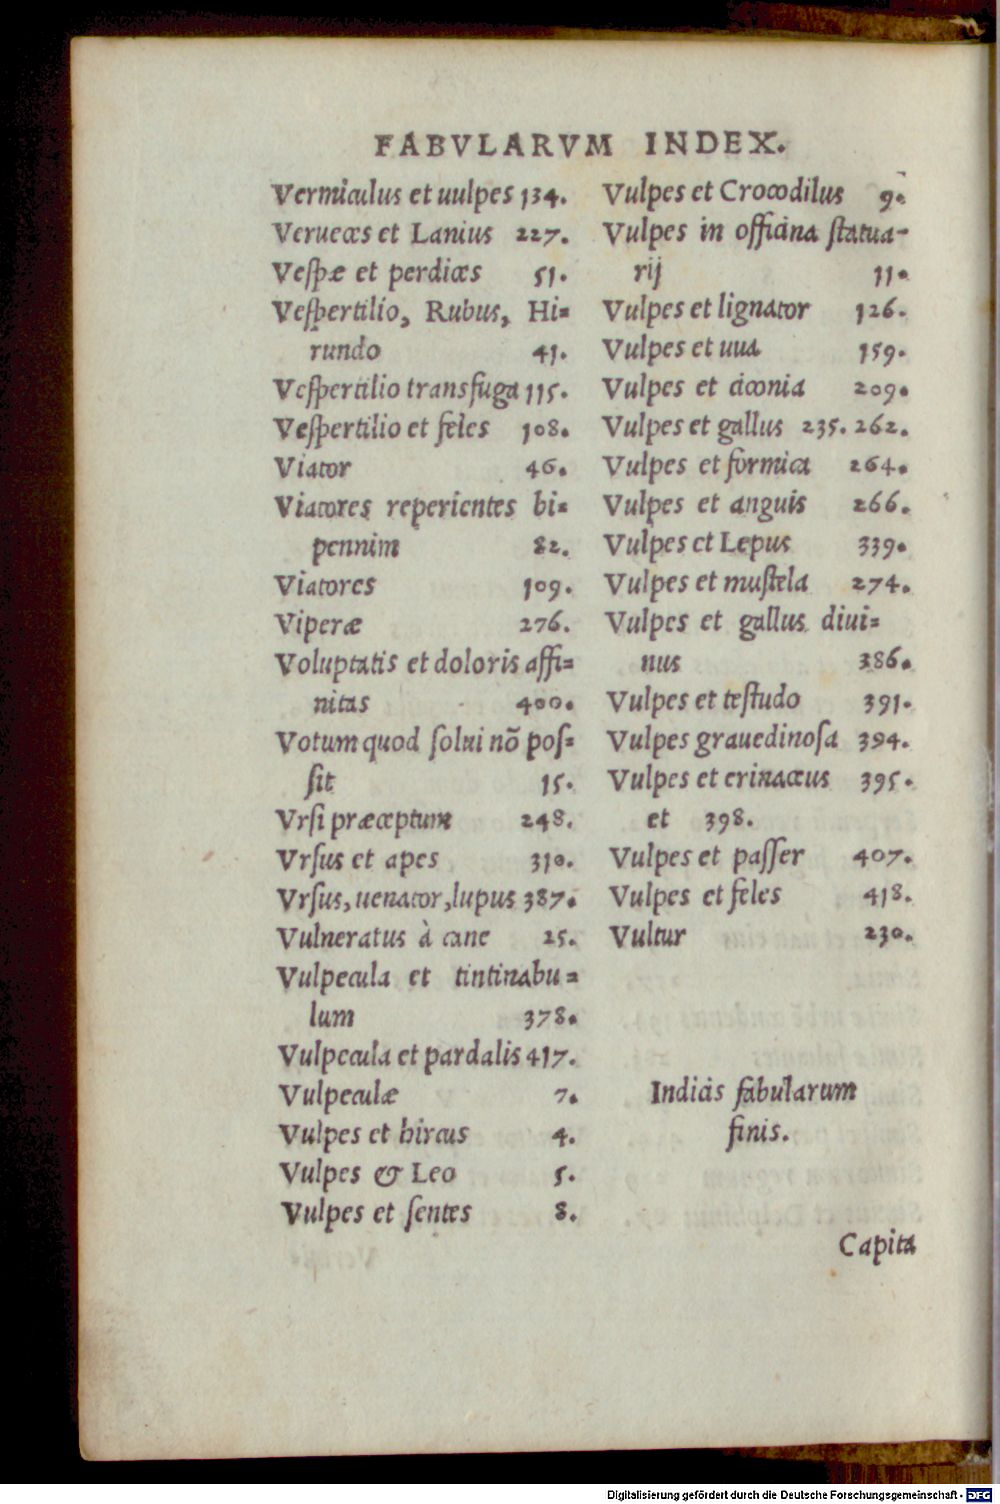 FABVLARVM INDEX.
Vermiculus et uulpes 134.
Verueces et Lanius 227.
Veſpæ et perdices 51.
Veſpertilio, Rubus, Hi=
rundo 41.
Veſpertilio transfuga 115.
Veſpertilio et feles 108.
Viator 46.
Viatores reperientes bi=
pennim 82.
Viatores 109.
Viperæ 276.
Voluptatis et doloris affi=
nitas 400.
Votum quod ſolui nõ poſ=
ſit 15.
Vrſi præceptum 248.
Vrſus et apes 310.
Vrſus, uenator, lupus 387.
Vulneratus à cane 25.
Vulpecula et tintinabu=
lum 378.
Vulpecula et pardalis 417.
Vulpeculæ 7.
Vulpes et hircus 4.
Vulpes & Leo 5.
Vulpes et ſentes 8.
Vulpes et Crocodilus 9.
Vulpes in officina ſtatua-
rij 11.
Vulpes et lignator 126.
Vulpes et uua 159.
Vulpes et ciconia 209.
Vulpes et gallus 235. 262.
Vulpes et formica 264.
Vulpes et anguis 266.
Vulpes et Lepus 339.
Vulpes et muſtela 274.
Vulpes et gallus diui=
nus 386.
Vulpes et teſtudo 391.
Vulpes grauedinoſa 394.
Vulpes et erinaceus 395.
et 398.
Vulpes et paſſer 407.
Vulpes et feles 418.
Vultur 230.
Indicis fabularum
finis.
Capita
Digitalisierung gefördert durch die Deutsche Forschungsgemeinschaft - DFG